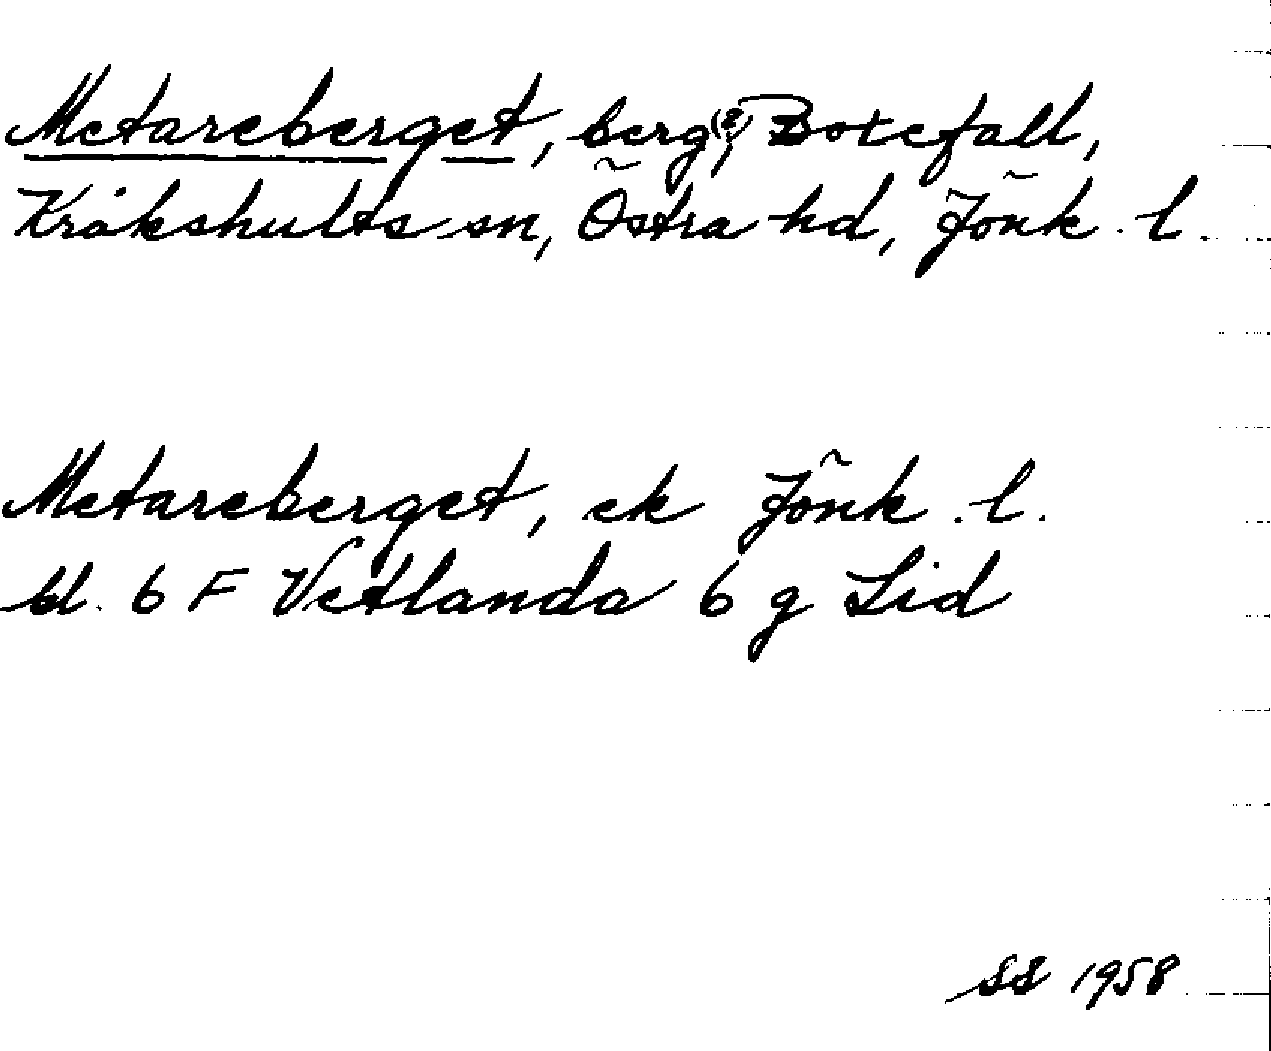 Metareberget, berg(?), Botefall,
Kråkshults sn, Östra hd, Jönk. l.
Metareberget, ek Jönk. l.
bl. 6 F Vetlanda 6 g Lid
SS 1958